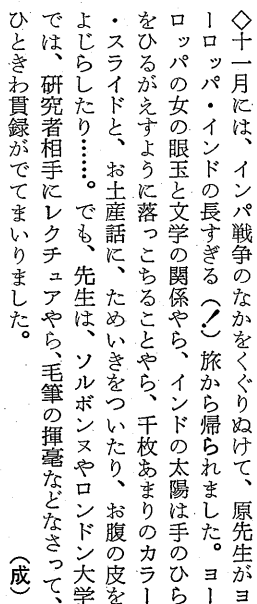 ◇十一月には、インパ戦争のなかをくぐりぬけて、原先生がヨ
ーロッパ・インドの長すぎる（！）旅から帰られました。ヨー
ロッパの女の眼玉と文学の関係やら、インドの太陽は手のひら
をひるがえすように落っこちることやら、千枚あまりのカラー
・スライドと、お土産話に、ためいきをついたり、お腹の皮を
よじらしたり……。でも、先生は、ソルボンヌやロンドン大学
では、研究者相手にレクチュアやら、毛筆の揮毫などなさって、
ひときわ貫録がでてまいりました。
（成）